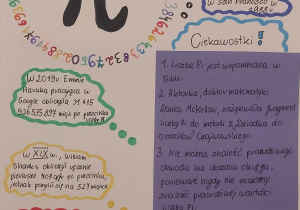 w San Francisco w
1988r.
Ciekawostki!
W 2019r. Emma
Haruka pracująca w
Google obliczyła 31 415
926 535 897 miejs po przecinku
liczby π
W XIX w., William
Shanks obliczył ręcznie
pierwsze 707 cyfr po przecinku,
jednak pomylił się na 527 miejscu
1. Liczba Pi, jest wspomniana w
Biblii.
2. Aktorka, doktor matematyki
Danica McKellar, zaśpiewała fragment
liczby π do melodii z Dziadka do
orzechów Czajkowskiego.
3. Nie można znaleźć prawdziwego
obwodu lub obszaru okręgu,
ponieważ nigdy nie możemy
znaleźć prawdziwej wartości
liczby Pi.